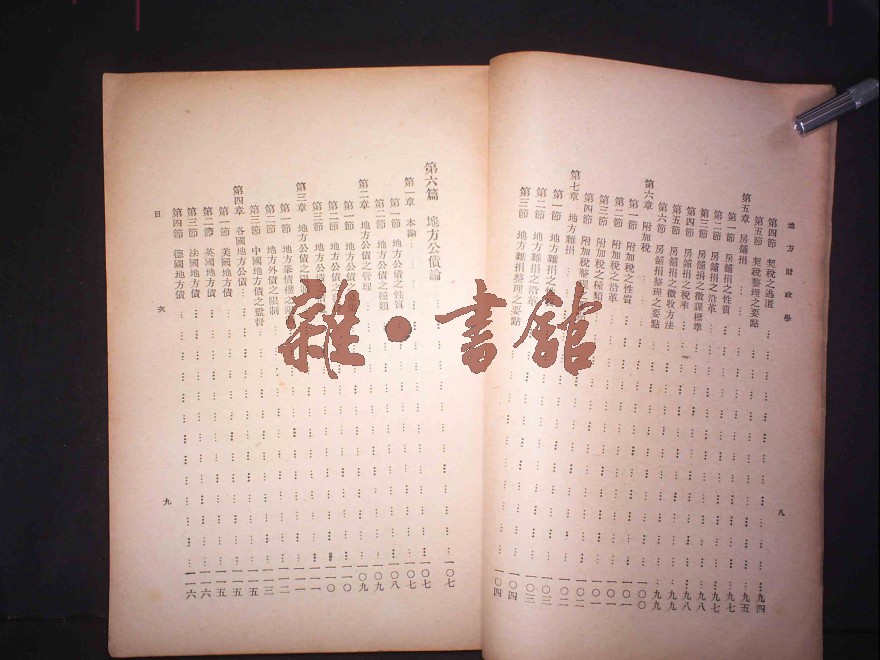 雜·書館
地方財政學
第四節 契稅之逃避……九四
第五節 契稅整理之要點……九五
第五章 房舖捐……九七
第一節 房舖捐之性質……九七
第二節 房舖捐之沿革……九八
第三節 房舖捐之徵課標準……九八
第四節 房舖捐之稅率……九九
第五節 房舖捐之徵收方法……九九
第六節 房舖捐整理之要點……一〇〇
第六章 附加稅……一〇〇
第一節 附加稅之性質……一〇一
第二節 附加稅之沿革……一〇一
第三節 附加稅之種類……一〇二
第四節 附加稅整理……一〇二
第七章 地方雜捐……一〇三
第一節 地方雜捐之……一〇三
第二節 地方雜捐之沿革……一〇四
第三節 地方雜捐整理之要點……一〇四
八
第六篇 地方公債論……一〇七
第一章 本論……一〇七
第一節 地方公債之性質……一〇七
第二節 地方公債之種類……一〇八
第二章 地方公債之管理……一〇九
第一節 地方公債……一〇九
第二節 地方公債……一一〇
第三節 地方公債……一一〇
第三章 地方公債之限……一一一
第一節 地方舉債權之……一一二
第二節 地方外債之限制……一一三
第三節 中國地方債之監督……一一五
第四章 各國地方公債……一一五
第一節 美國地方債……一一五
第二節 英國地方債……一一六
第三節 法國地方債
第四節 德國地方債……一一六
目 次
九